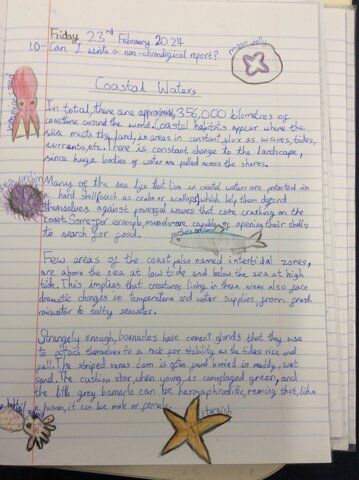 Friday 23rd February 2024
LO- Can I write a non-chronological report?
moon jelly
Coastal Waters
In total, there are approximately 356,000 kilometres of
coastline around the world. Coastal habitats appear where the
sea meets the land, in areas in constant flux as waves, tides,
currents, etc. There is constant change to the landscape,
since huge bodies of water are pulled across the shores.
urchin
Many of the sea life that live in coastal waters are protected in
hard shells (such as crabs or scallops) which help them defend
themselves against powerful waves that come crashing on the
coast. Some - for example, mussels - are capable of opening their shells
to search for food.
Few areas of the coast, also named intertidal zones,
are above the sea at low tide and below the sea at high
tide. This implies that creatures living in these areas also face
dramatic changes in temperature and water supplies, from fresh
rainwater to salty seawater.
Strangely enough, barnacles have cement glands that they use
to attach themselves to a rock for stability as the tides rise and
fall. The striped venus clam is often found buried in muddy, wet
sand. The cushion star, when young, is camoflaged green, and
the little grey barnacle can be hermaphroditic, meaning that, like
a human, it can be male or female.
starfish